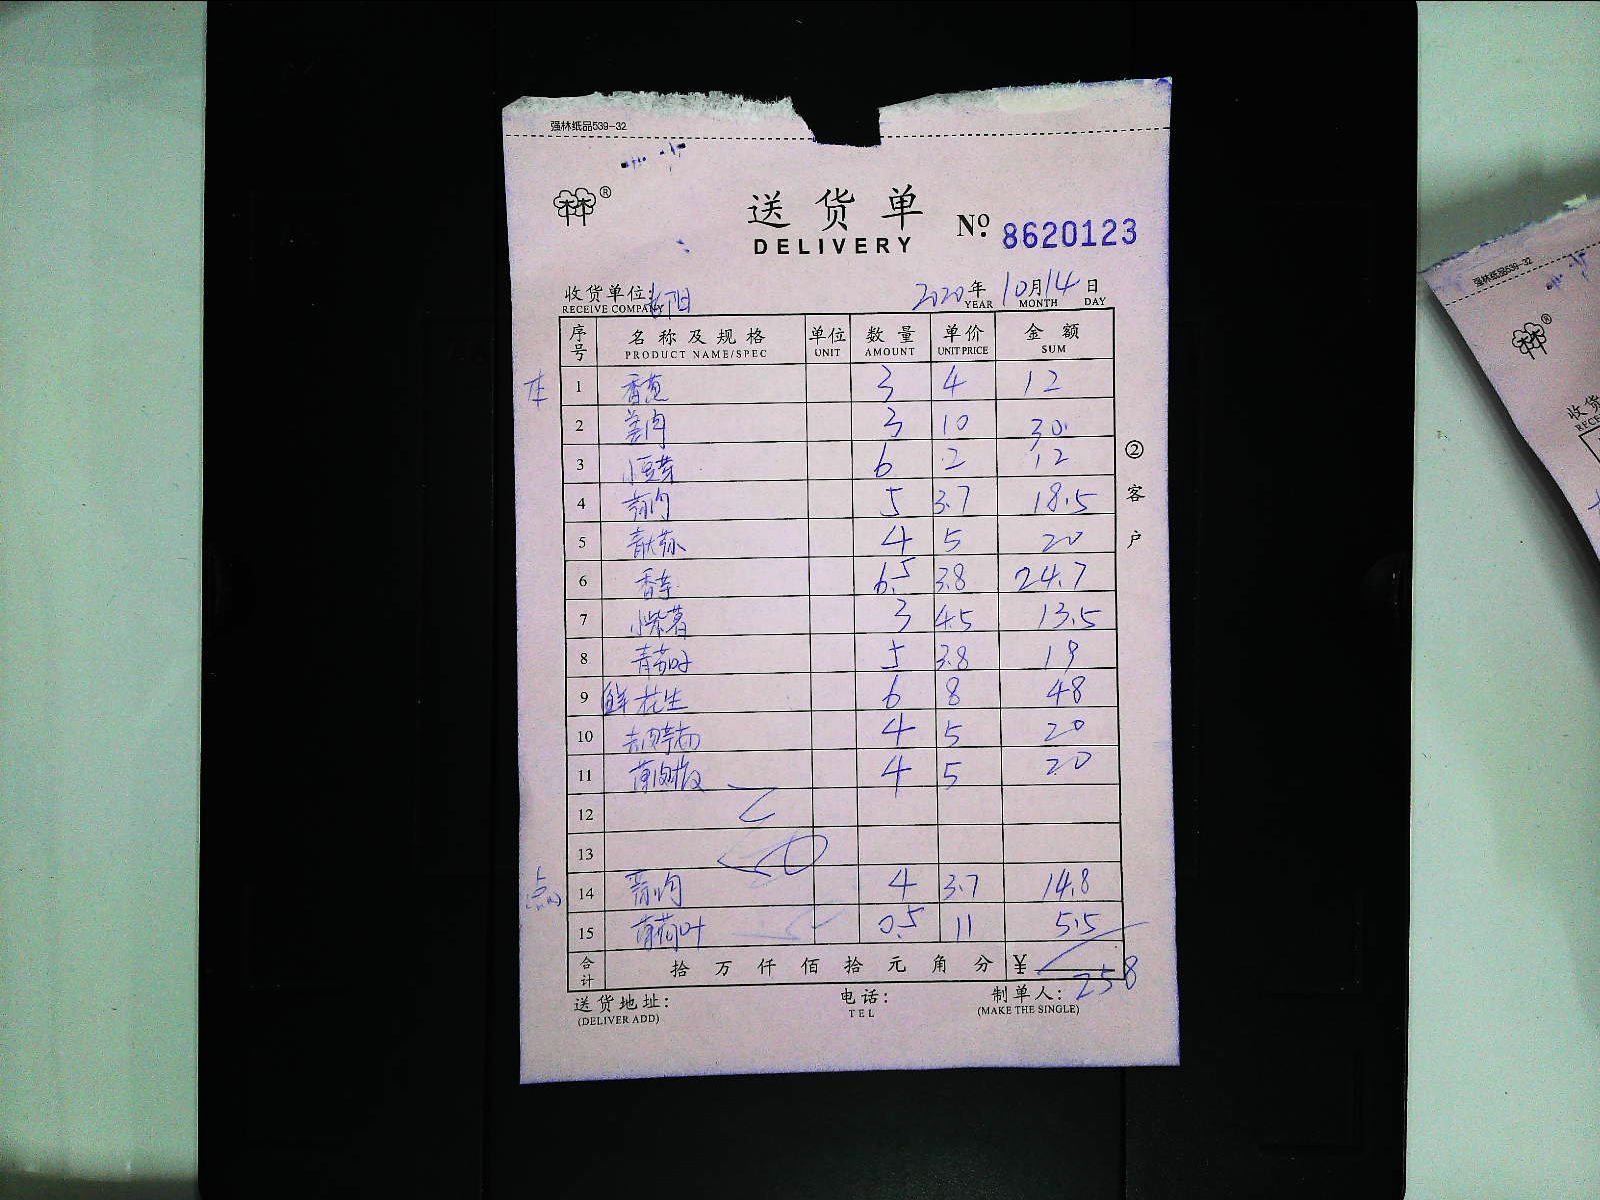 强林纸品539-32
林林®
送货单
DELIVERY
Nº. 8620123
收货单位: 阳
RECEIVE COMPANY
2020年 10月14日
YEAR MONTH DAY
序号 名称及规格 单位 数量 单价 金额
PRODUCT NAME/SPEC UNIT AMOUNT UNIT PRICE SUM
本 1 香葱 3 4 12
2 姜肉 3 10 30
3 小豆芽 6 2 12
4 5 3.7 18.5
5 4 5 20
6 香芋 6.5 3.8 24.7
7 小紫薯 3 4.5 13.5
8 5 3.8 19
9 鲜花生 6 8 48
10 4 5 20
11 4 5 20
12
13
14 4 3.7 14.8
15 薄荷叶 0.5 11 5.5
合计 拾万仟佰拾元角分 ¥ 258
送货地址: 电话: 制单人:
(DELIVER ADD) TEL (MAKE THE SINGLE)
②客户
强林纸品539-32
林林®
收货